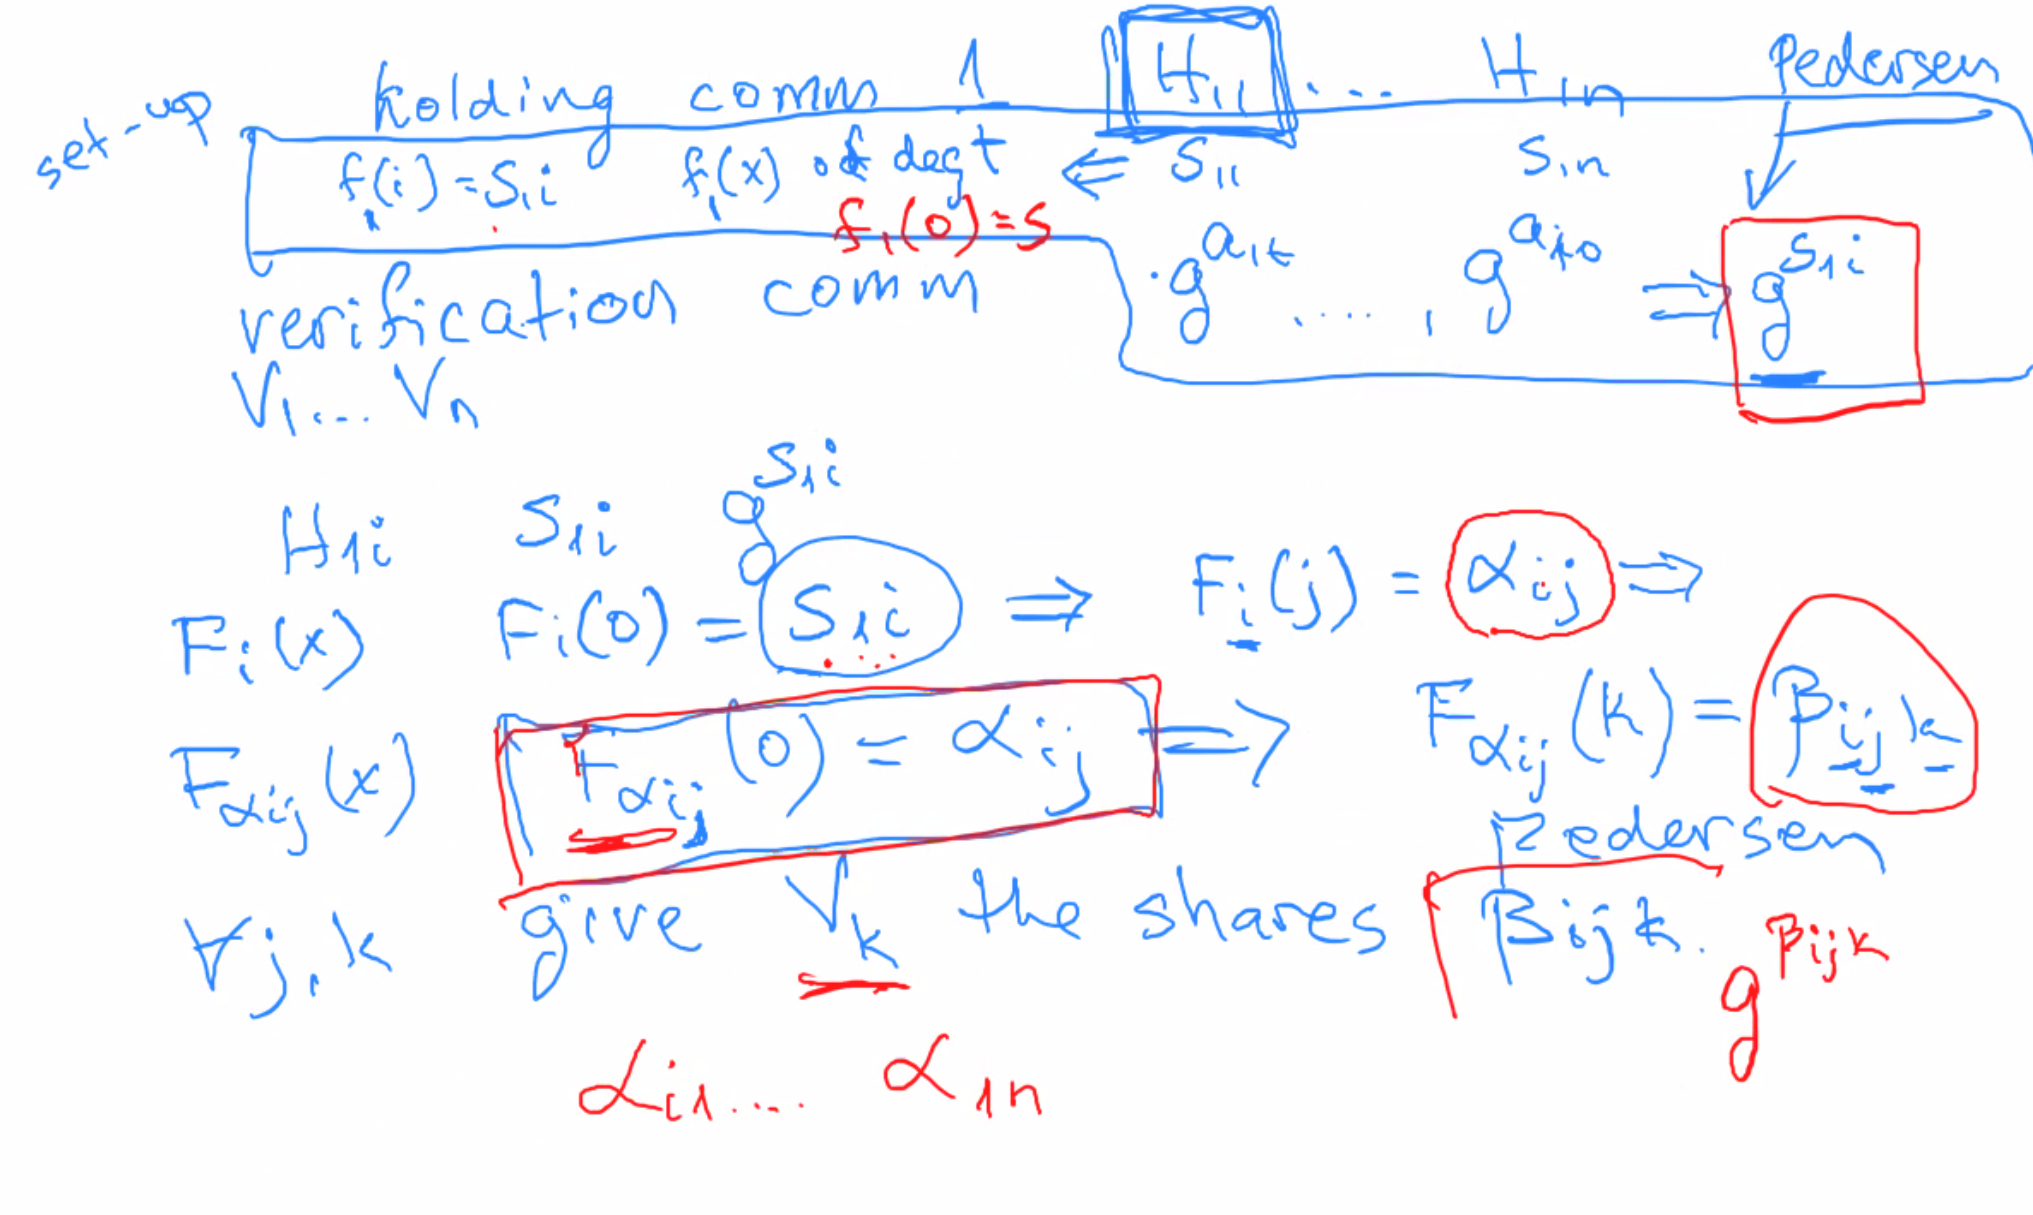 set-up holding comm 1 H₁₁ .... H₁ₙ Pedersen
f₁(i) = S₁i f₁(x) of deg t ⇐ S₁₁ S₁ₙ
f₁(0) = S
verification comm g^{a₁t} ....., g^{a₁₀} ⇒ g^{S₁i}
V₁ .... Vₙ
H₁i S₁i g^{S₁i}
Fᵢ(x) Fᵢ(0) = S₁i ⇒ Fᵢ(j) = αᵢⱼ ⇒
F_{αij}(x) F_{αij}(0) = αᵢⱼ ⇒ F_{αij}(k) = βᵢⱼₖ
Pedersen
∀j,k give Vₖ the shares βᵢⱼₖ. g^{βijk}
αᵢ₁ .... α₁ₙ